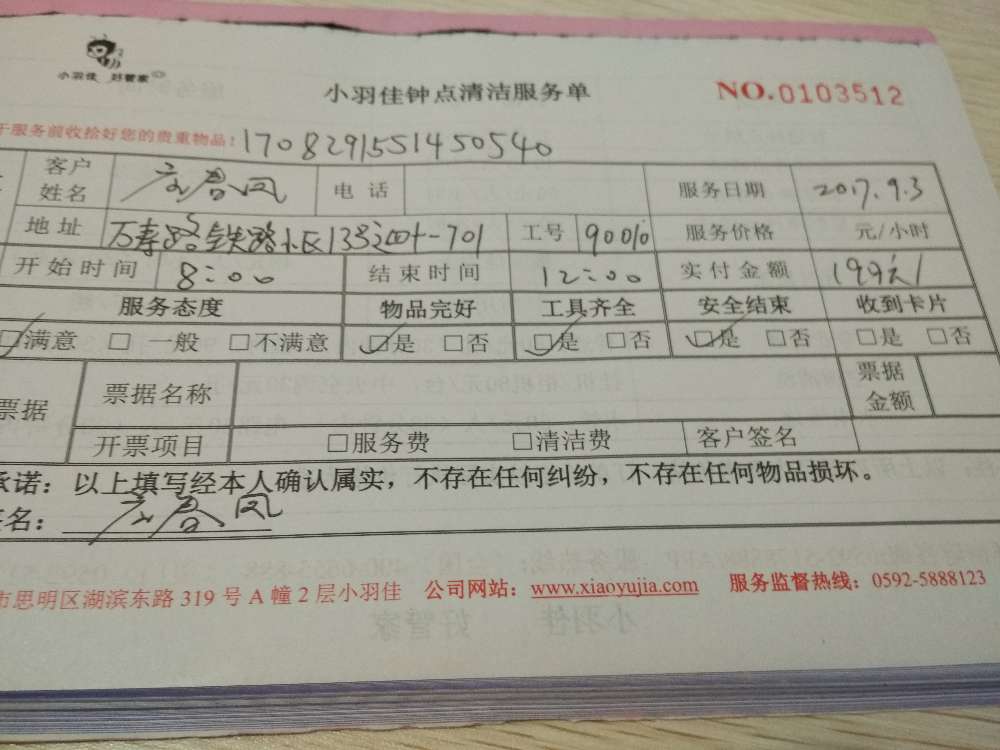 小羽佳 好管家
小羽佳钟点清洁服务单
NO.0103512
于服务前收拾好您的贵重物品:170829155145054​0
客户姓名 春凤 电话 服务日期 2017.9.3
地址 万寿路铁路小区13 701 工号 90010 服务价格 元/小时
开始时间 8:00 结束时间 12:00 实付金额 199元
服务态度 物品完好 工具齐全 安全结束 收到卡片
☑满意 □ 一般 □不满意 ☑是 □否 ☑是 □否 ☑是 □否 □是 □否
票据 票据名称 票据金额
开票项目 □服务费 □清洁费 客户签名
承诺:以上填写经本人确认属实,不存在任何纠纷,不存在任何物品损坏。
签名: 春凤
市思明区湖滨东路 319 号 A 幢 2 层小羽佳 公司网站:www.xiaoyujia.com 服务监督热线:0592-5888123